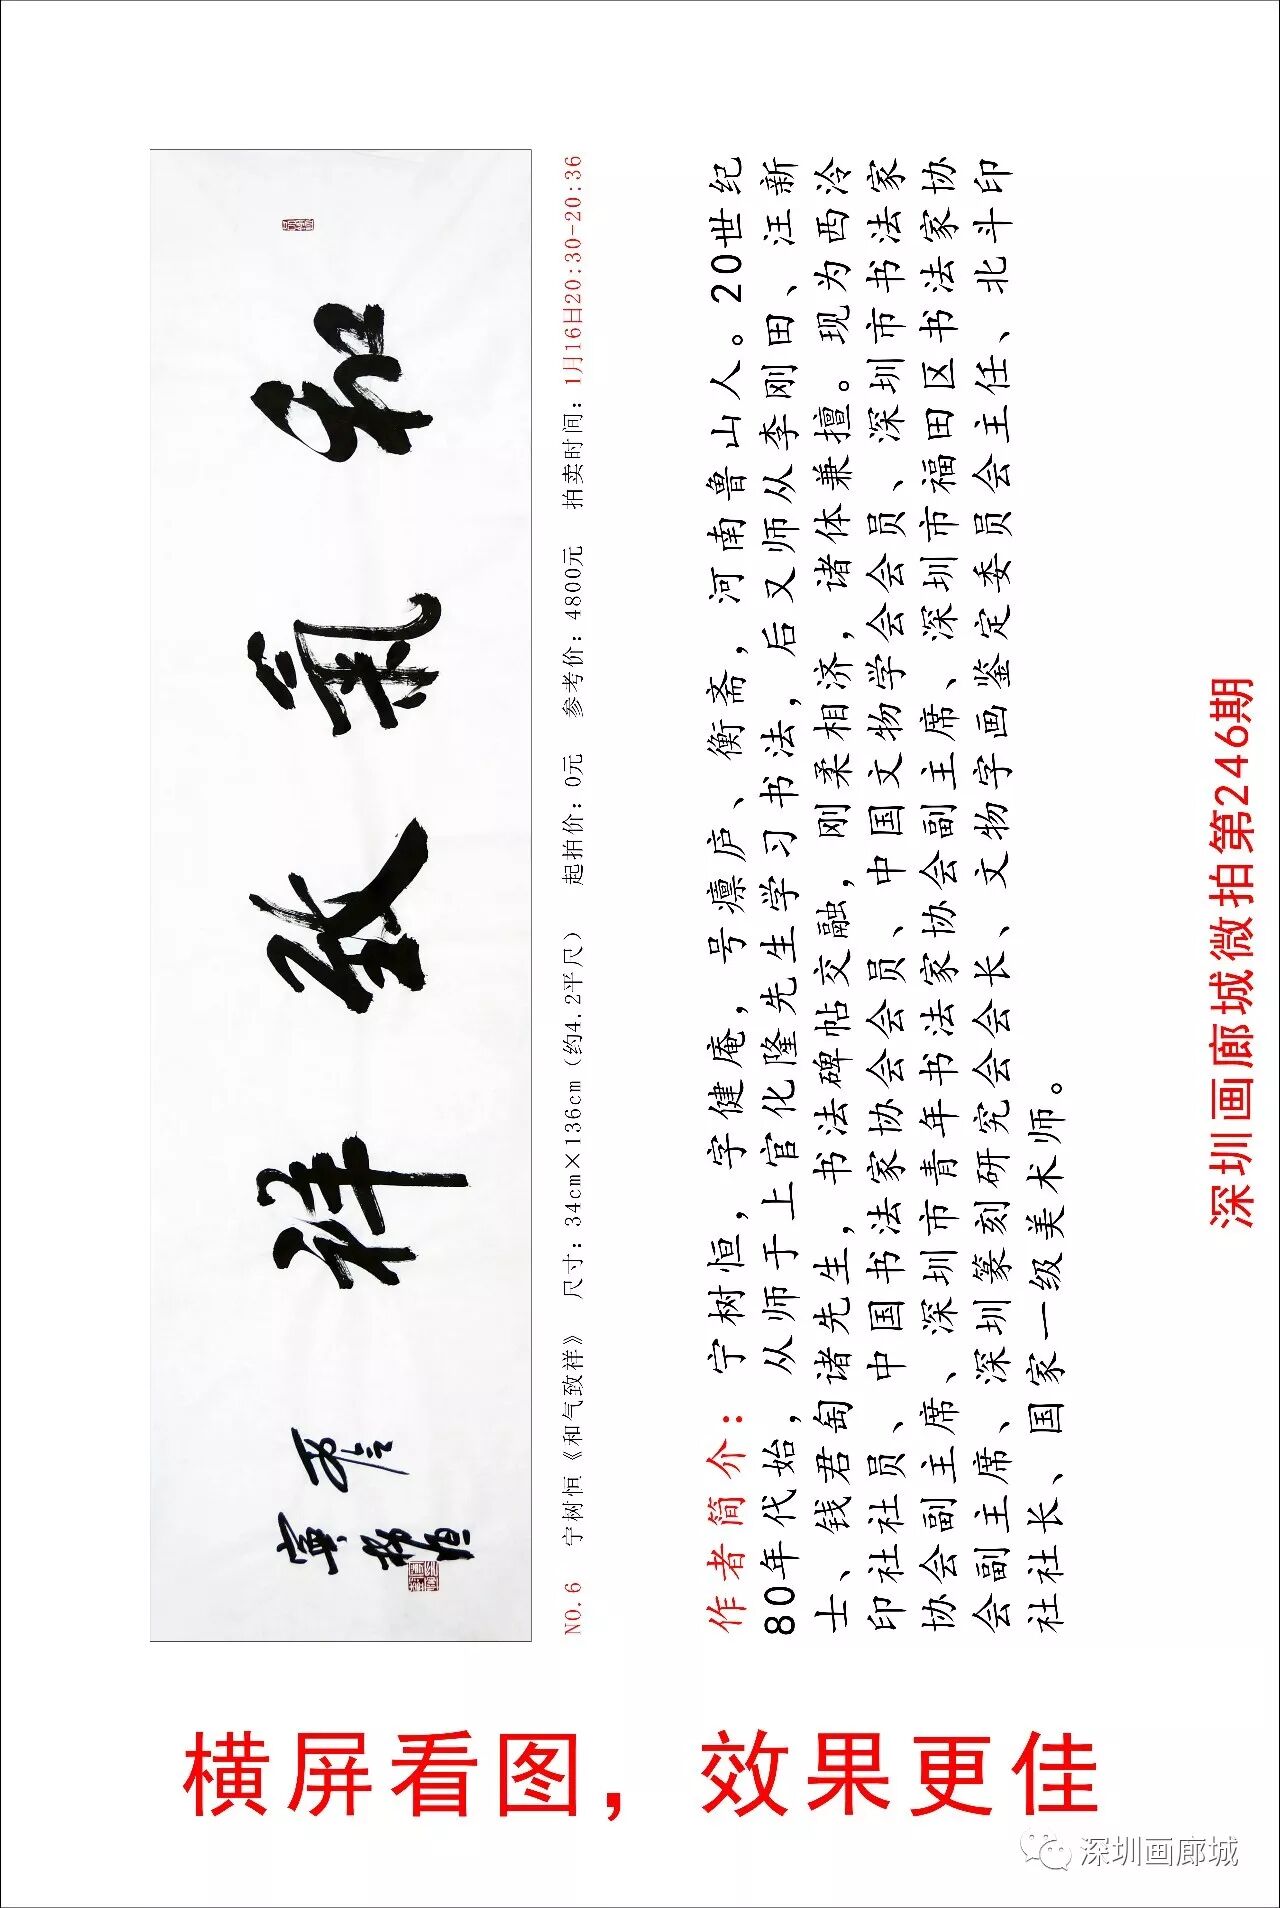 和气致祥
丁酉
宁树恒
NO.6 宁树恒《和气致祥》 尺寸：34cm×136cm（约4.2平尺） 起拍价：0元 参考价：4800元 拍卖时间：1月16日20:30-20:36
作者简介：宁树恒，字健庵，号癝庐、衡斋，河南鲁山人。20世纪
80年代始，从师于上官化隆先生学习书法，后又师从李刚田、汪新
士、钱君匋诸先生，书法碑帖交融，刚柔相济，诸体兼擅。现为西泠
印社社员、中国书法家协会会员、中国文物学会会员、深圳市书法家
协会副主席、深圳市青年书法家协会副主席、深圳市福田区书法家协
会副主席、深圳篆刻研究会会长、文物字画鉴定委员会主任、北斗印
社社长、国家一级美术师。
深圳画廊城微拍第246期
横屏看图，效果更佳
深圳画廊城